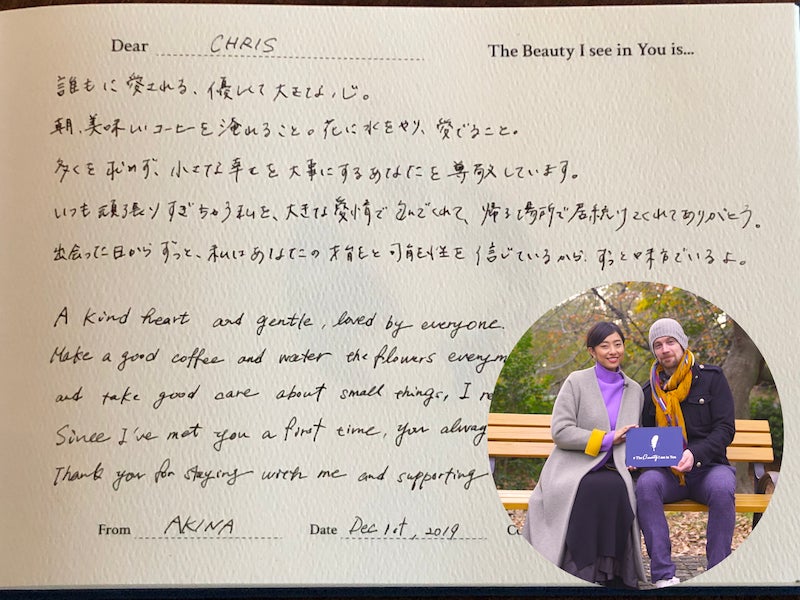 Dear CHRIS
The Beauty I see in You is...
誰もに愛される、優しくて大きな心。
朝、美味しいコーヒーを淹れること。花に水をやり、愛でること。
多くを求めず、小さな幸せを大事にするあなたを尊敬しています。
いつも頑張りすぎちゃう私を、大きな愛情で包んでくれて、帰る場所で居続けてくれてありがとう。
出会った日からずっと、私はあなたの才能と可能性を信じているから、ずっと味方でいるよ。
A kind heart and gentle, loved by everyone.
Make a good coffee and water the flowers every
and take good care about small things, I
Since I've met you a first time, you
Thank you for staying with me and supporting
From AKINA
Date Dec 1st, 2019
# The Beauty I see in You